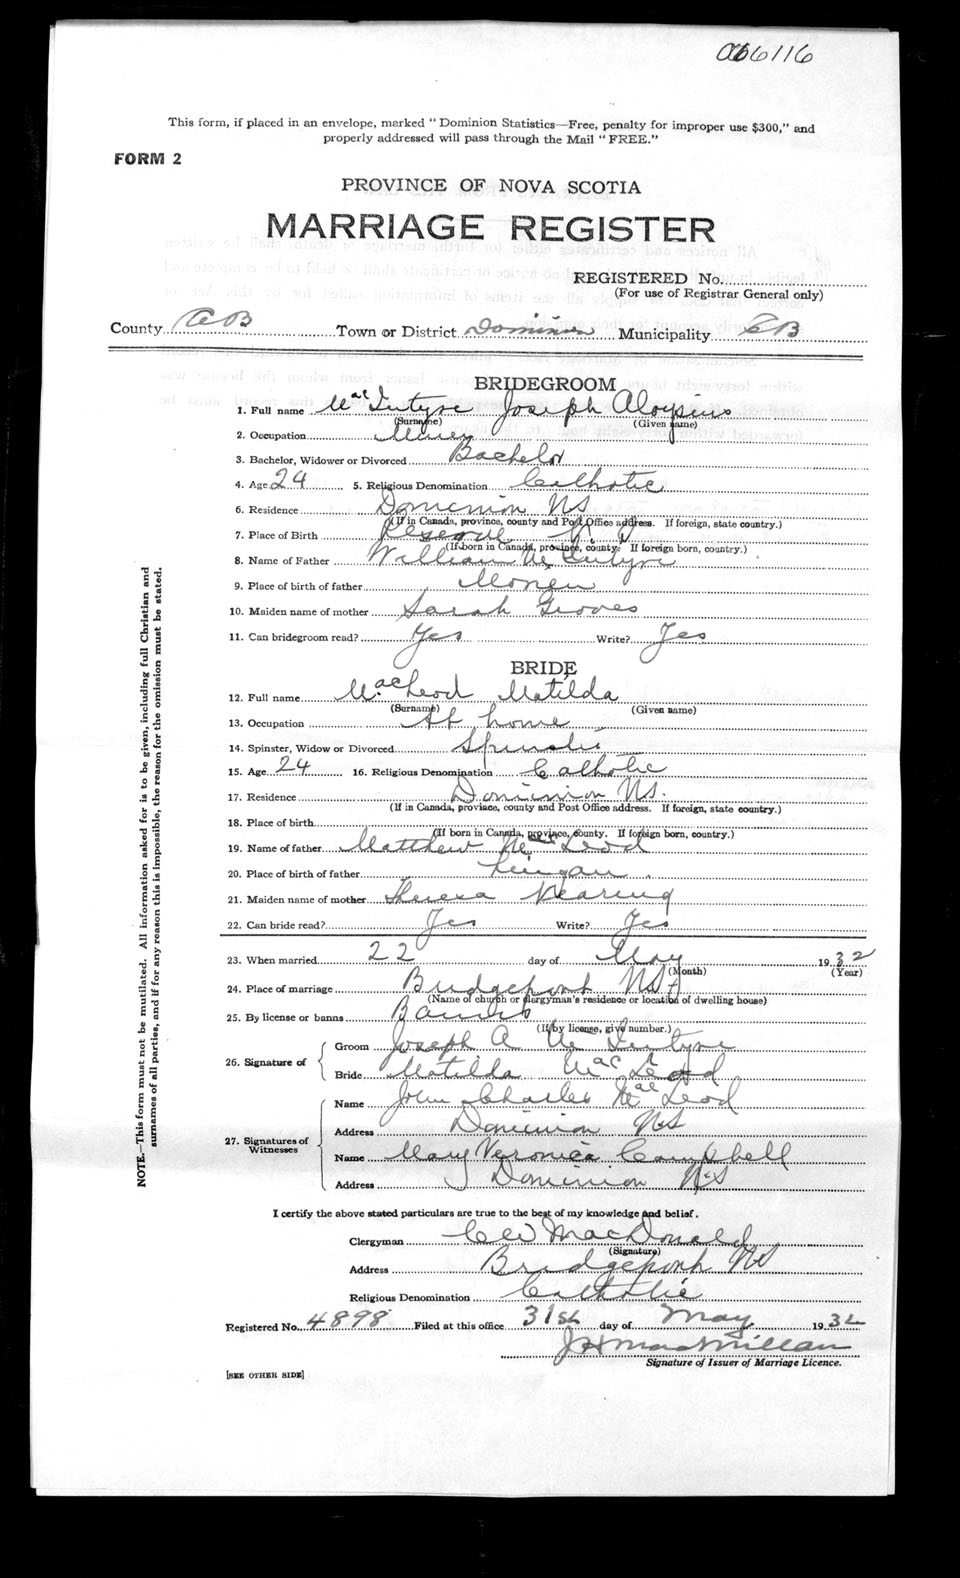 066116
This form, if placed in an envelope, marked "Dominion Statistics—Free, penalty for improper use $300," and
properly addressed will pass through the Mail "FREE."
FORM 2
PROVINCE OF NOVA SCOTIA
MARRIAGE REGISTER
REGISTERED No.
(For use of Registrar General only)
County CB Town or District Dominion Municipality CB
BRIDEGROOM
1. Full name MacIntyre Joseph Aloysius
(Surname) (Given name)
2. Occupation Miner
3. Bachelor, Widower or Divorced Bachelor
4. Age 24 5. Religious Denomination Catholic
6. Residence Dominion NS
(If in Canada, province, county and Post Office address. If foreign, state country.)
7. Place of Birth Reserve N.S
(If born in Canada, province, county. If foreign born, country.)
8. Name of Father William McIntyre
9. Place of birth of father
10. Maiden name of mother Sarah Groves
11. Can bridegroom read? Yes Write? Yes
BRIDE
12. Full name MacLeod Matilda
(Surname) (Given name)
13. Occupation At home
14. Spinster, Widow or Divorced Spinster
15. Age 24 16. Religious Denomination Catholic
17. Residence Dominion NS.
(If in Canada, province, county and Post Office address. If foreign, state country.)
18. Place of birth
(If born in Canada, province, county. If foreign born, country.)
19. Name of father Matthew MacLeod
20. Place of birth of father Lingan
21. Maiden name of mother Theresa Nearing
22. Can bride read? Yes Write? Yes
23. When married 22 day of May 1932
(Month) (Year)
24. Place of marriage Bridgeport NS
(Name of church or clergyman's residence or location of dwelling house)
25. By license or banns Banns
(If by license, give number.)
26. Signature of
Groom Joseph A McIntyre
Bride Matilda MacLeod
27. Signatures of Witnesses
Name John Charles MacLeod
Address Dominion NS
Name Mary Veronica Campbell
Address Dominion NS
I certify the above stated particulars are true to the best of my knowledge and belief.
Clergyman CW MacDonald
(Signature)
Address Bridgeport NS
Religious Denomination Catholic
Registered No. 4898 Filed at this office 31st day of May 1932
JH MacMillan
Signature of Issuer of Marriage Licence.
[SEE OTHER SIDE]
NOTE.—This form must not be mutilated. All information asked for is to be given, including full Christian and
surnames of all parties, and if for any reason this is impossible, the reason for the omission must be stated.